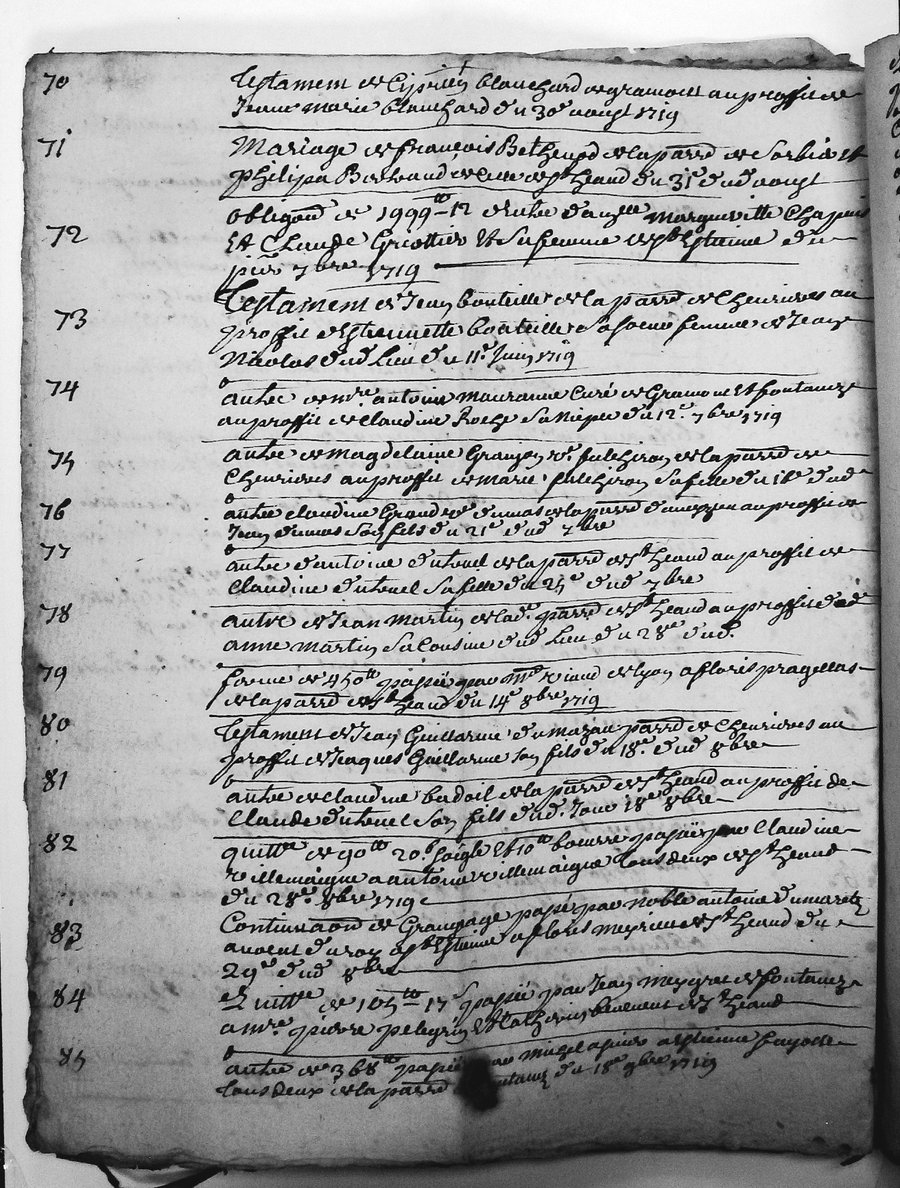 70 Testament de Ciprien blanchard de gramont au proffit de
Jeane marie blanchard du 30e aougt 1719
71 Mariage de françois Betheupd de la parre de Sorbie et
philipa Bertrand de Celle de st heand du 31e dud aougt
72 obligaon de 1999tt-12 deube a
Et Claude Griottier Et Sa femme de st Estienne du
pier 7bre 1719
73 Testament de Jean bouteille de la parre de Chevrieres au
proffit destiennette bouteille Sa soeur femme de Jean
Nicolas dud Lieu du 11e Juin 1719
74 autre de mre antoine mauranne Curé de Gramont Et fontanez
au proffit de Claudine Roche Sa Niepce du 12e 7bre 1719
75 autre de magdelaine Grangon ve fulchiron de la parre de
Chevrieres au proffit de marie fulchiron Sa fille du 16e dud
76 autre claudine Grand ve dumas de la parre au proffit de
Jean dumas Son fils du 21e dud 7bre
77 autre dantoine dutevel de la parre de st heand au proffit de
Claudine dutevel Sa fille du 25e dud 7bre
78 autre de Jean martin de lad. parre de st heand au proffit
anne martin Sa Cousine dud Lieu du 28e dud.
79 ferme de 450tt passée par Mre Viand de Lyon a floris pragellas
de la parre de st heand du 14e 8bre 1719
80 Testament de Jean Guillarme du mazau parre de Chevrieres au
proffit de Jacques Guillarme son fils du 18e dud 8bre
81 autre de Claudine badoil de la parre de st heand au proffit de
Claude dutevel Son fils dud. Jour 18e 8bre
82 quittce de 90tt 20b Soigle Et 10tt beurre passée par Claudine
Villemaigne a antoine Villemaigne tous deux de st heand
du 28e 8bre 1719
83 Continuaon de Grangage passée par noble antoine dumarest
avocat du roy a st Estienne a floris meyrieu de st heand du
29e dud 8bre
84 Quittce de 105tt-17s passée par Jean meygret de fontanez
a mre pierre pelegrin Et Catherin de st heand
85 autre de 368tt passée par michel apinet a Estienne fayolle
tous deux de la parre fontanez du 18e 9bre 1719